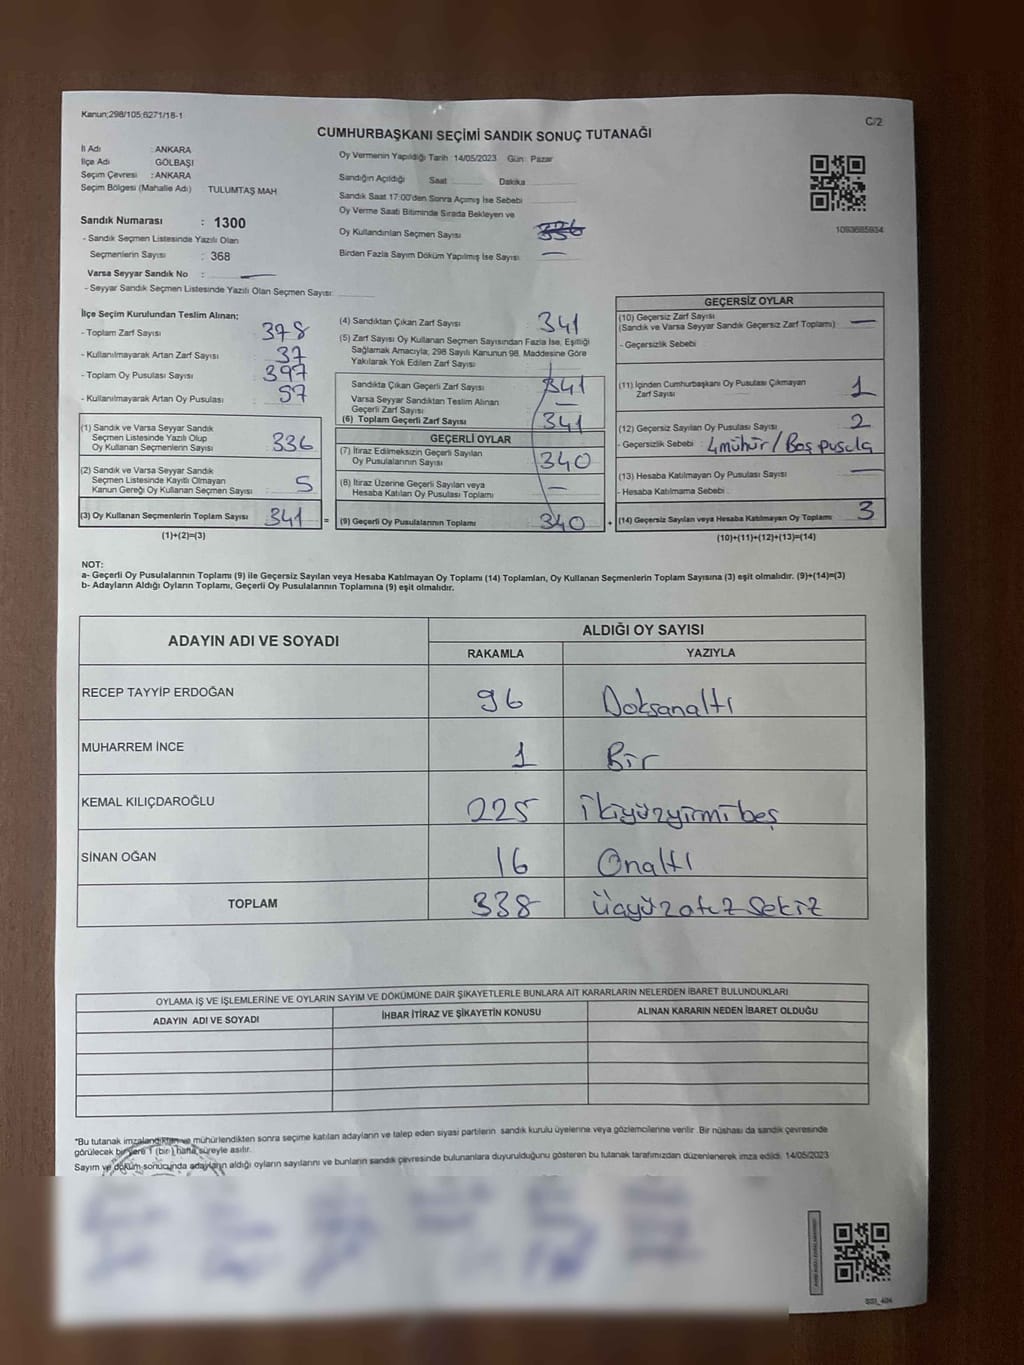 Kanun;298/105;6271/18-1
C/2
CUMHURBAŞKANI SEÇİMİ SANDIK SONUÇ TUTANAĞI
İl Adı : ANKARA
İlçe Adı GÖLBAŞI
Seçim Çevresi : ANKARA
Seçim Bölgesi (Mahalle Adı) TULUMTAŞ MAH
Sandık Numarası : 1300
- Sandık Seçmen Listesinde Yazılı Olan
Seçmenlerin Sayısı : 368
Varsa Seyyar Sandık No : —
- Seyyar Sandık Seçmen Listesinde Yazılı Olan Seçmen Sayısı:
Oy Vermenin Yapıldığı Tarih 14/05/2023 Gün: Pazar
Sandığın Açıldığı Saat Dakika
Sandık Saat 17:00'den Sonra Açımış İse Sebebi
Oy Verme Saati Bitiminde Sırada Bekleyen ve
Oy Kullandırılan Seçmen Sayısı 336
Birden Fazla Sayım Döküm Yapılmış İse Sayısı —
1093685934
İlçe Seçim Kurulundan Teslim Alınan:
- Toplam Zarf Sayısı 378
- Kullanılmayarak Artan Zarf Sayısı 37
- Toplam Oy Pusulası Sayısı 397
- Kullanılmayarak Artan Oy Pusulası 57
(1) Sandık ve Varsa Seyyar Sandık
Seçmen Listesinde Yazılı Olup
Oy Kullanan Seçmenlerin Sayısı 336
(2) Sandık ve Varsa Seyyar Sandık
Seçmen Listesinde Kayıtlı Olmayan
Kanun Gereği Oy Kullanan Seçmen Sayısı 5
(3) Oy Kullanan Seçmenlerin Toplam Sayısı 341 =
(1)+(2)=(3)
(4) Sandıktan Çıkan Zarf Sayısı 341
(5) Zarf Sayısı Oy Kullanan Seçmen Sayısından Fazla İse, Eşitliği
Sağlamak Amacıyla, 298 Sayılı Kanunun 98. Maddesine Göre
Yakılarak Yok Edilen Zarf Sayısı
Sandıkta Çıkan Geçerli Zarf Sayısı 341
Varsa Seyyar Sandıktan Teslim Alınan
Geçerli Zarf Sayısı —
(6) Toplam Geçerli Zarf Sayısı 341
GEÇERLİ OYLAR
(7) İtiraz Edilmeksizin Geçerli Sayılan
Oy Pusulalarının Sayısı 340
(8) İtiraz Üzerine Geçerli Sayılan veya
Hesaba Katılan Oy Pusulası Toplamı —
(9) Geçerli Oy Pusulalarının Toplamı 340 +
GEÇERSİZ OYLAR
(10) Geçersiz Zarf Sayısı
(Sandık ve Varsa Seyyar Sandık Geçersiz Zarf Toplamı) —
- Geçersizlik Sebebi
(11) İçinden Cumhurbaşkanı Oy Pusulası Çıkmayan
Zarf Sayısı 1
(12) Geçersiz Sayılan Oy Pusulası Sayısı 2
- Geçersizlik Sebebi : 4mühür/Boş pusula
(13) Hesaba Katılmayan Oy Pusulası Sayısı —
- Hesaba Katılmama Sebebi
(14) Geçersiz Sayılan veya Hesaba Katılmayan Oy Toplamı 3
(10)+(11)+(12)+(13)=(14)
NOT:
a- Geçerli Oy Pusulalarının Toplamı (9) ile Geçersiz Sayılan veya Hesaba Katılmayan Oy Toplamı (14) Toplamları, Oy Kullanan Seçmenlerin Toplam Sayısına (3) eşit olmalıdır. (9)+(14)=(3)
b- Adayların Aldığı Oyların Toplamı, Geçerli Oy Pusulalarının Toplamına (9) eşit olmalıdır.
ADAYIN ADI VE SOYADI
ALDIĞI OY SAYISI
RAKAMLA YAZIYLA
RECEP TAYYİP ERDOĞAN 96 Doksanaltı
MUHARREM İNCE 1 Bir
KEMAL KILIÇDAROĞLU 225 ikiyüzyirmibeş
SİNAN OĞAN 16 Onaltı
TOPLAM 338 Üçyüzotuz sekiz
OYLAMA İŞ VE İŞLEMLERİNE VE OYLARIN SAYIM VE DÖKÜMÜNE DAİR ŞİKAYETLERLE BUNLARA AİT KARARLARIN NELERDEN İBARET BULUNDUKLARI
ADAYIN ADI VE SOYADI İHBAR İTİRAZ VE ŞİKAYETİN KONUSU ALINAN KARARIN NEDEN İBARET OLDUĞU
*Bu tutanak imzalandıktan ve mühürlendikten sonra seçime katılan adayların ve talep eden siyasi partilerin sandık kurulu üyelerine veya gözlemcilerine verilir. Bir nüshası da sandık çevresinde
görülecek bir yere 1 (bir) hafta süreyle asılır.
Sayım ve döküm sonucunda adayların aldığı oyların sayılarını ve bunların sandık çevresinde bulunanlara duyurulduğunu gösteren bu tutanak tarafımızdan düzenlenerek imza edildi. 14/05/2023